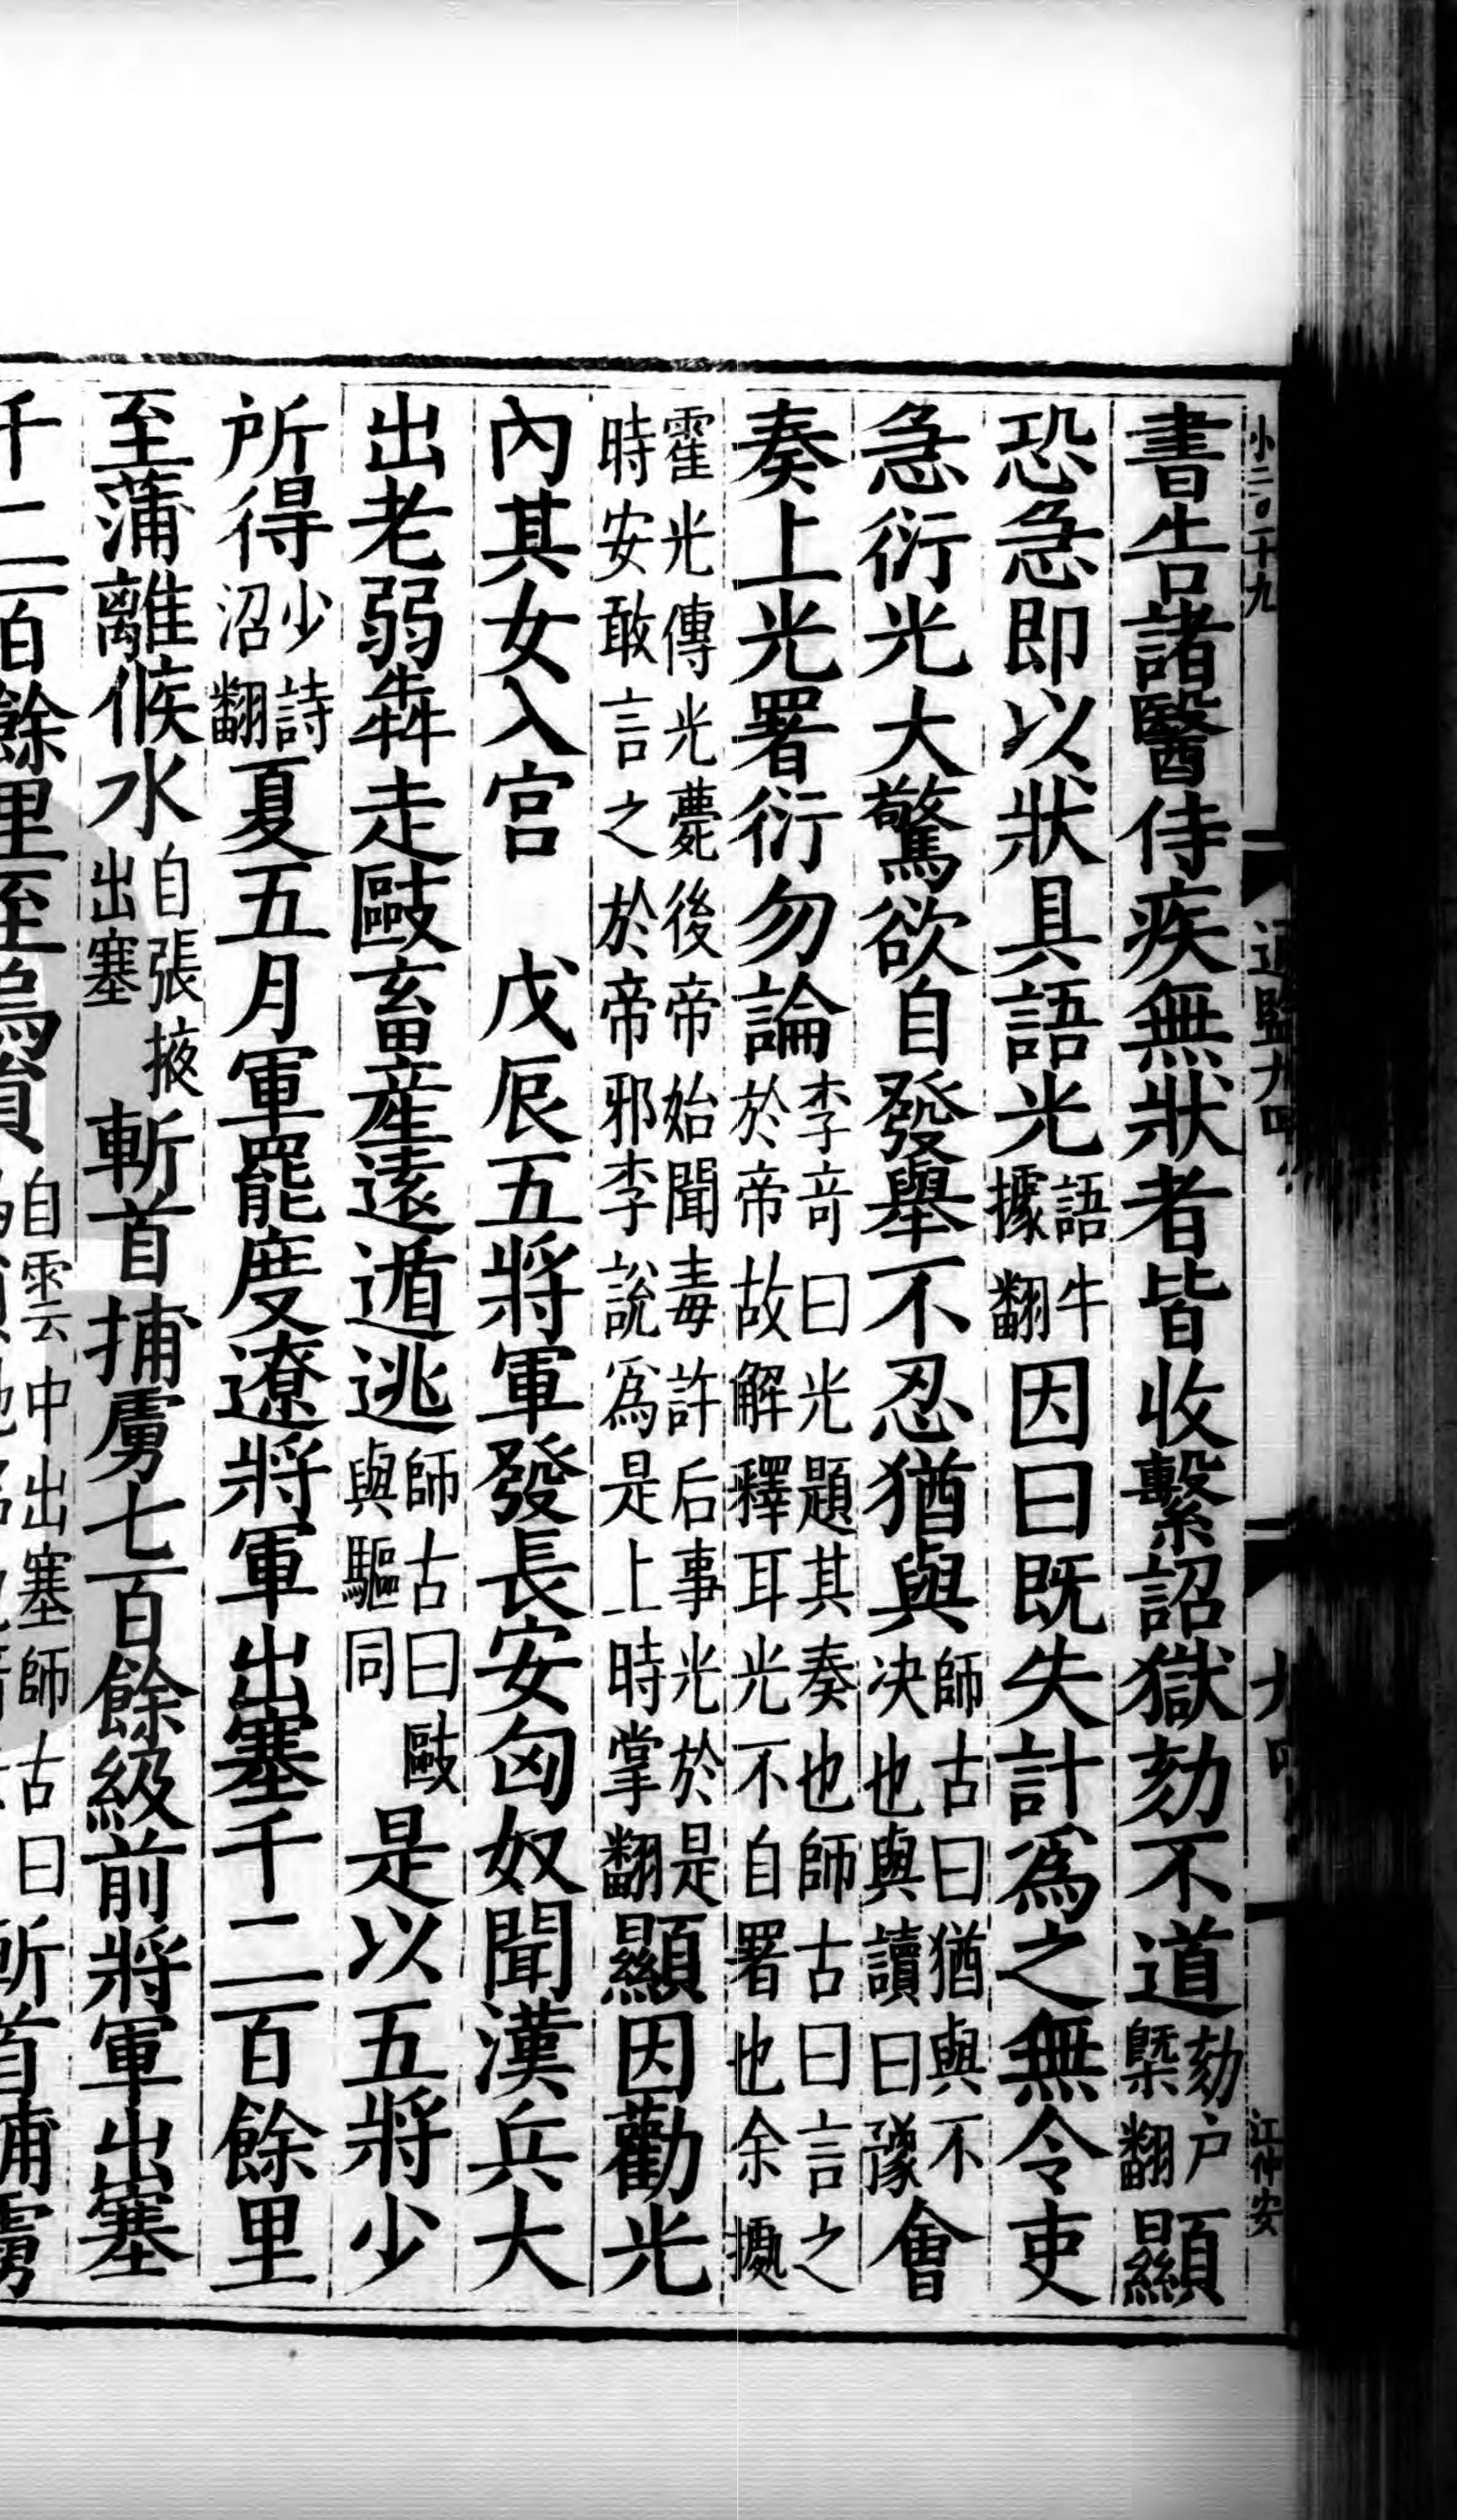 小二〇二十九
江仲安
書告諸醫侍疾無狀者皆收繫詔獄劾不道劾戶槩翻顯
恐急即以狀具語光語牛據翻因曰既失計爲之無令吏
急衍光大驚欲自發舉不忍猶與師古曰猶與不决也與讀曰豫會
奏上光署衍勿論李奇曰光題其奏也師古曰言之於帝故解釋耳光不自署也余據
霍光傳光薨後帝始聞毒許后事光於是時安敢言之於帝邪李說爲是上時掌翻顯因勸光
內其女入宮　戊辰五將軍發長安匈奴聞漢兵大
出老弱犇走敺畜產遠遁逃師古曰敺與驅同是以五將少
所得少詩沼翻夏五月軍罷度遼將軍出塞千二百餘里
至蒲離候水自張掖出塞斬首捕虜七百餘級前將軍出塞
千二百餘里至烏員自雲中出塞師古曰斬首捕虜